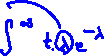 ∫^∞ t.λe^-λ